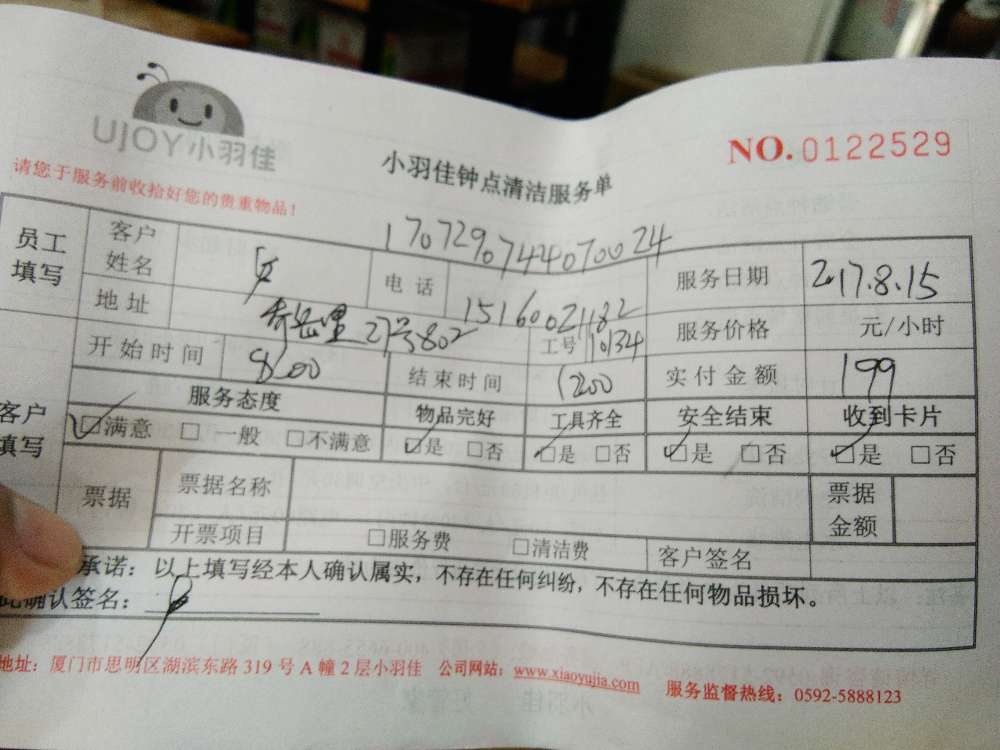 UJOY小羽佳
小羽佳钟点清洁服务单
NO.0122529
请您于服务前收拾好您的贵重物品!
17072907444070024
员工填写 客户姓名 电话 15160021182 服务日期 2017.8.15
地址 27号802 工号 10134 服务价格 元/小时
开始时间 8:00 结束时间 1200 实付金额 199
客户填写 服务态度 物品完好 工具齐全 安全结束 收到卡片
☑满意 □一般 □不满意 ☑是 □否 ☑是 □否 ☑是 □否 ☑是 □否
票据 票据名称 票据金额
开票项目 □服务费 □清洁费 客户签名
承诺：以上填写经本人确认属实，不存在任何纠纷，不存在任何物品损坏。
此确认签名：
地址：厦门市思明区湖滨东路 319 号 A 幢 2 层小羽佳 公司网站：www.xiaoyujia.com 服务监督热线：0592-5888123